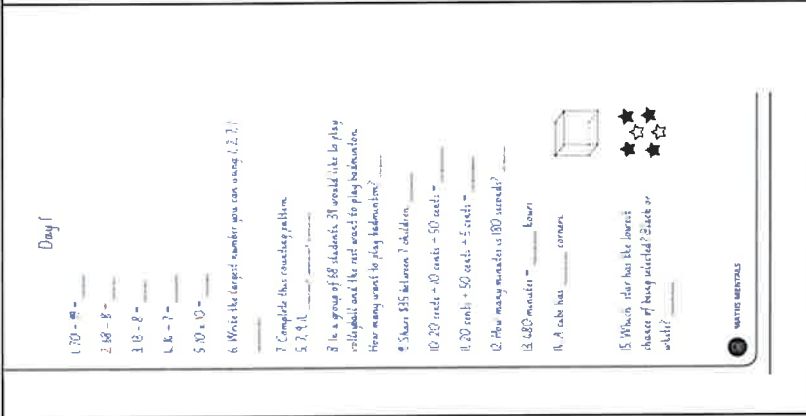 Day 1
1. 70 - =
2. 68 - 8 =
3. 13 - 8 =
4. 16 - 7 =
5. 10 x 10 =
6. Write the largest number you can using
7. Complete this counting pattern.
5, 7, 9, 11,
8. In a group of 68 students, 39 would like to play
volleyball and the rest want to play badminton.
How many want to play badminton?
9. Share $35 between 7 children.
10. 20 cents + 10 cents + 50 cents =
11. 20 cents + 50 cents + 5 cents =
12. How many minutes is 180 seconds?
13. 480 minutes = hours
14. A cube has corners.
15. Which star has the lowest
chance of being selected? Black or
white?
MATHS MENTALS